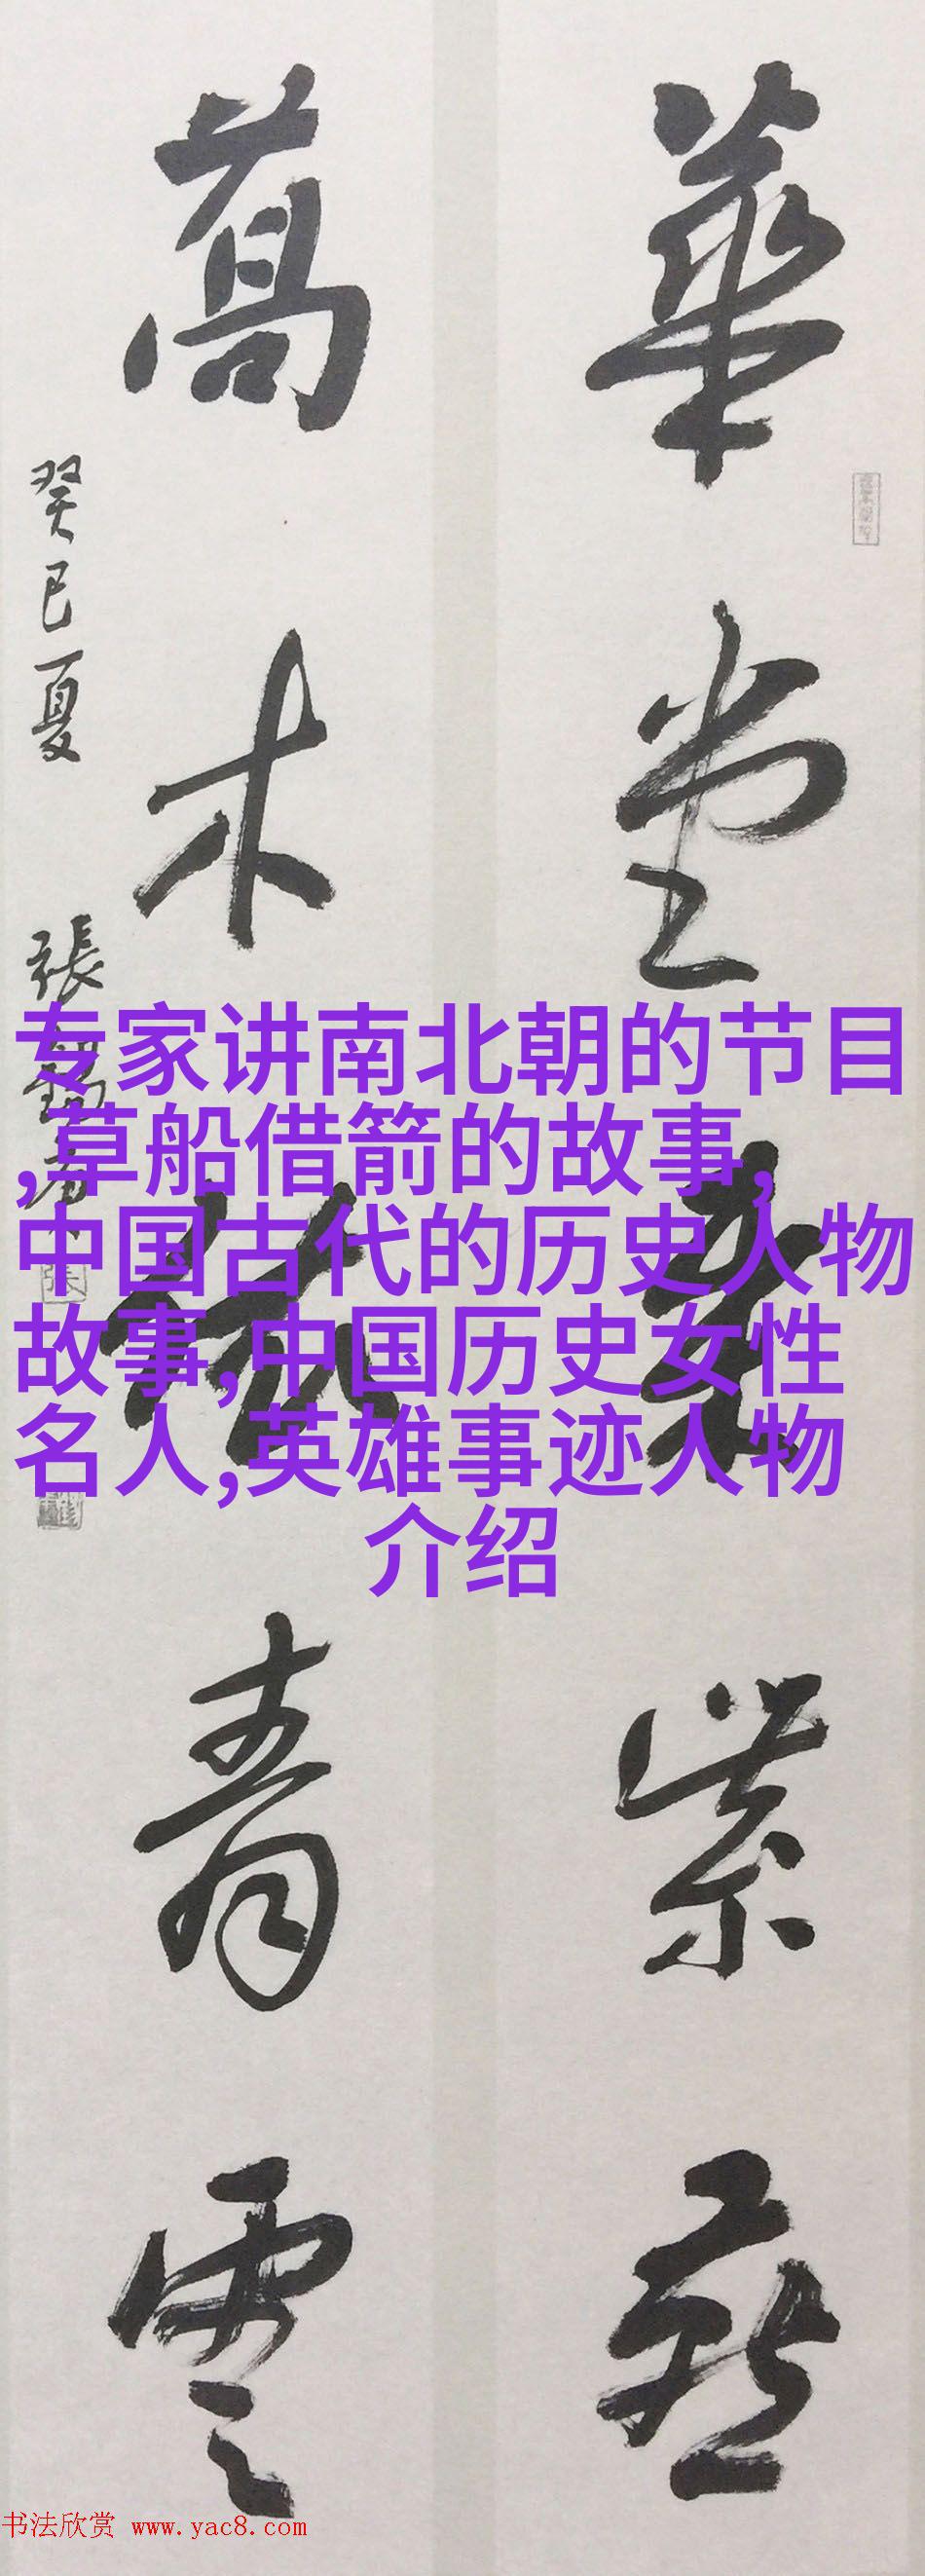 華堂紫
萬木青雲
癸巳夏 張
专家讲南北朝的节目
,草船借箭的故事,
中国古代的历史人物
故事,中国历史女性
名人,英雄事迹人物
介绍
书法欣赏 www.yac8.com